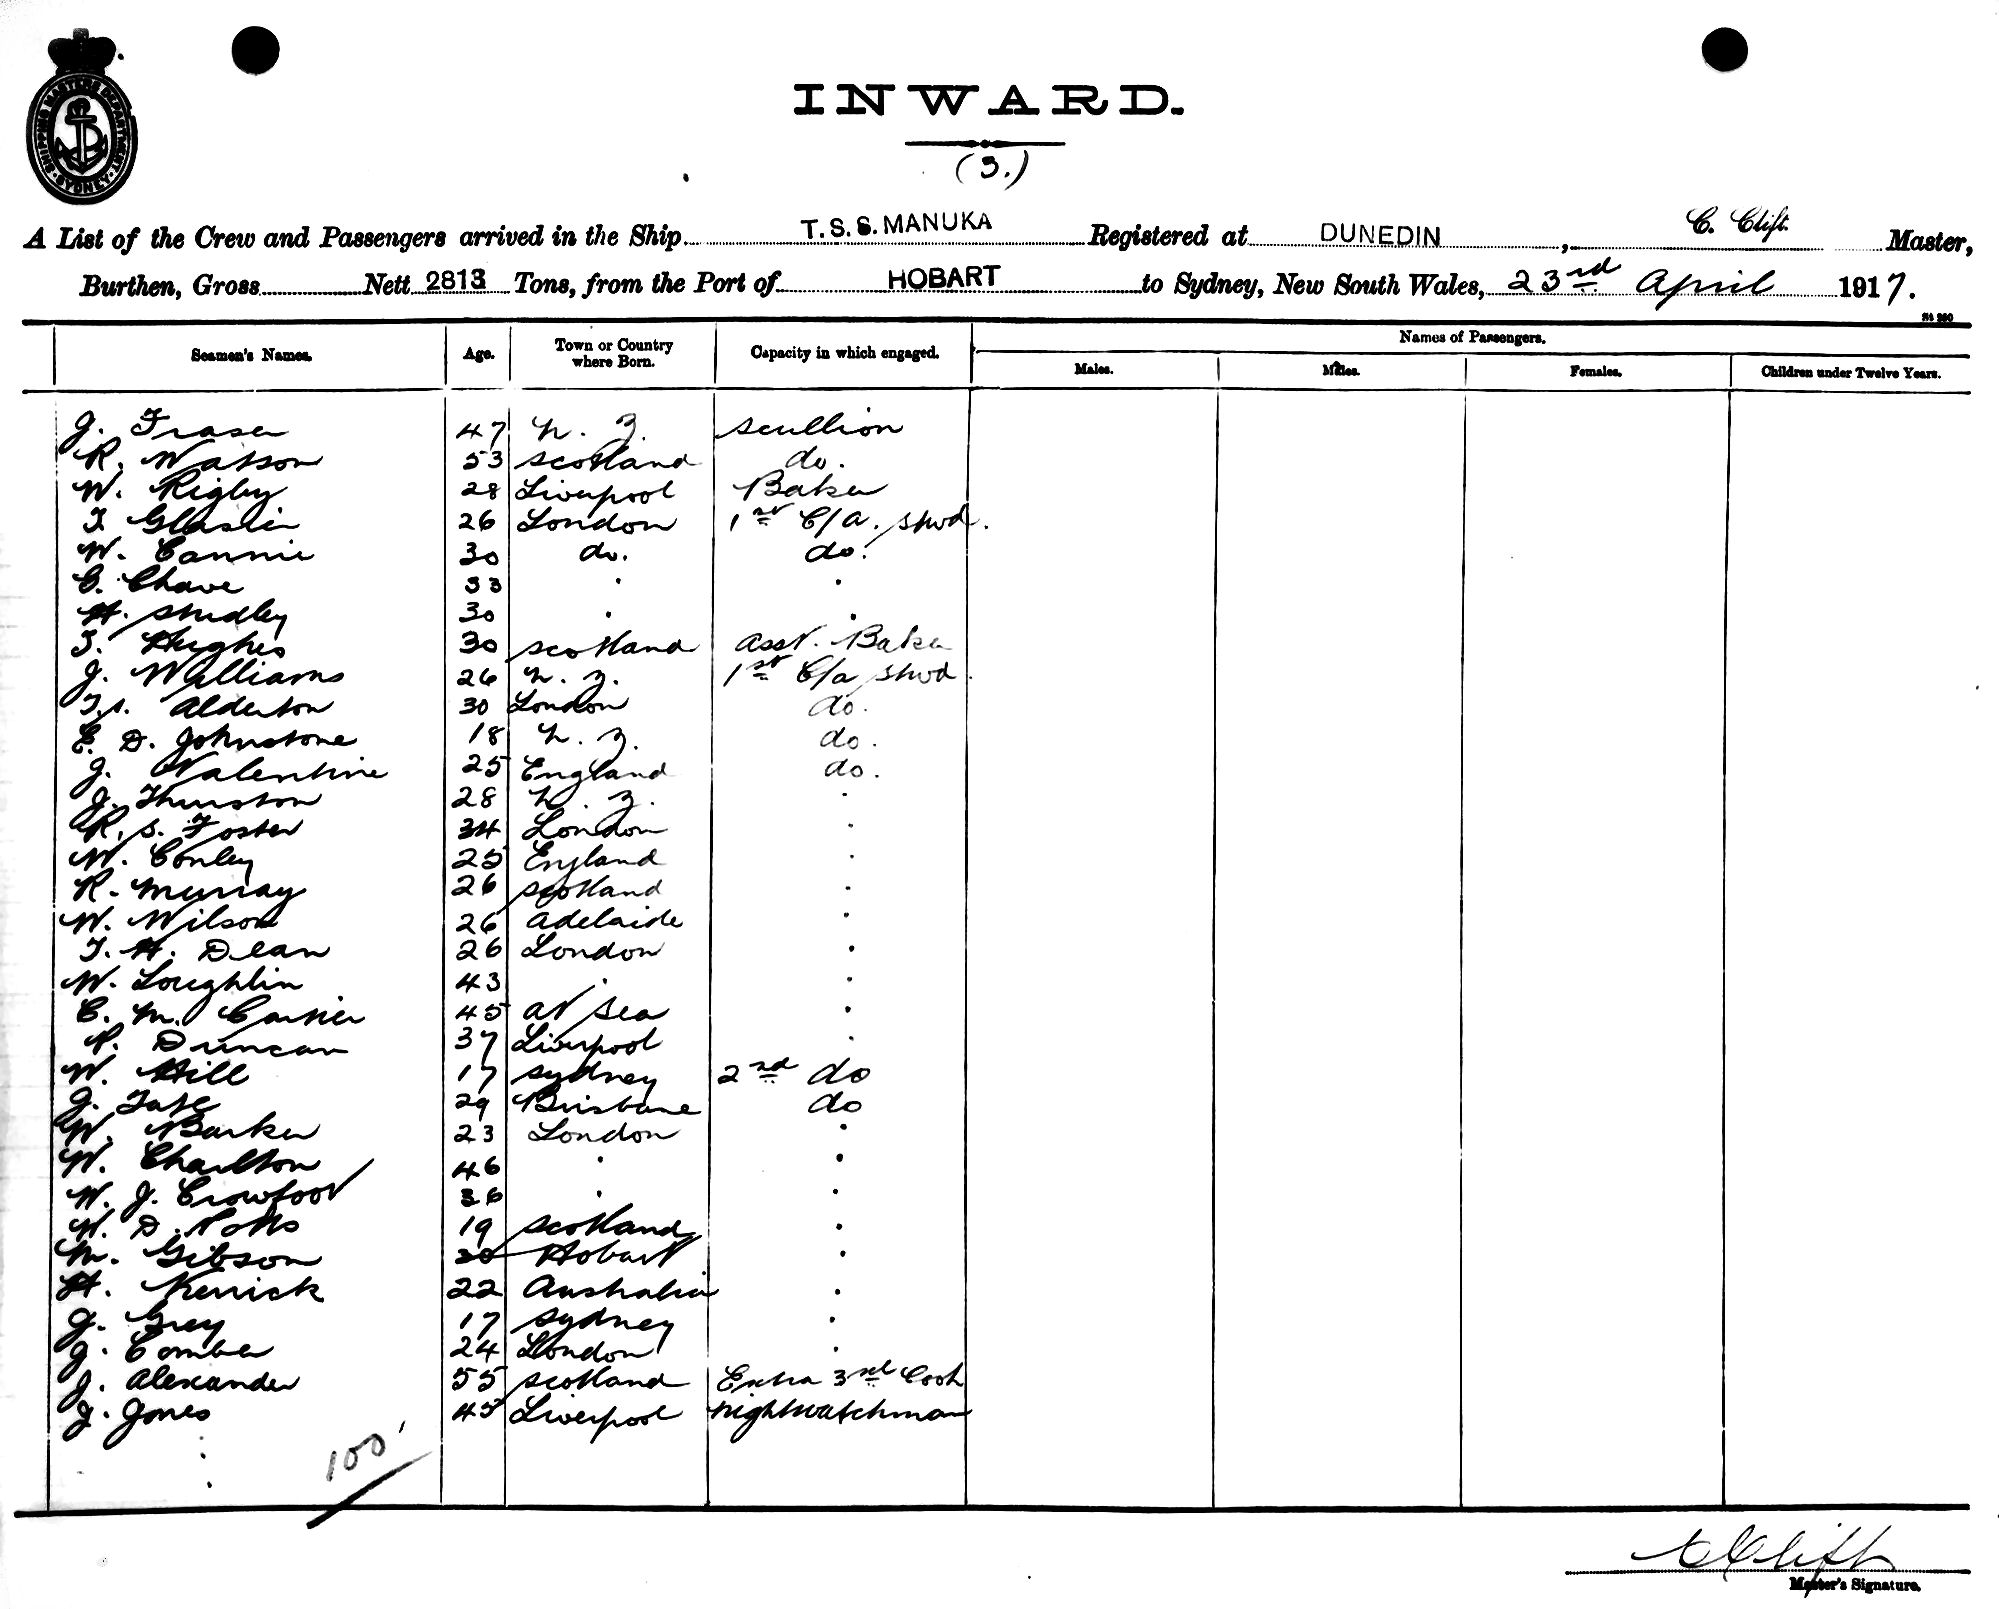 SHIPPING MASTERS DEPARTMENT
SYDNEY
INWARD.
(3.)
A List of the Crew and Passengers arrived in the Ship T.S.S. MANUKA Registered at DUNEDIN, C. Clift. Master,
Burthen, Gross Nett 2813 Tons, from the Port of HOBART to Sydney, New South Wales, 23rd April 1917.
Names of Passengers.
Seamen's Names. Age. Town or Country where Born. Capacity in which engaged. Males. Males. Females. Children under Twelve Years.
J. Fraser 47 N. Z. Scullion
R. Watson 53 Scotland do.
W. Rigby 28 Liverpool Baker
T. Glasier 26 London 1st C/a. Stwd.
W. Cannie 30 do. do.
G. Chave 33 " "
H. Studley 30 " "
T. Hughes 30 Scotland Asst. Baker
J. Williams 26 N. Z. 1st C/a Stwd.
Alderton 30 London do.
E. D. Johnstone 18 N. Z. do.
J. Valentine 25 England do.
J. Thurston 28 N. Z. "
R. S. Foster 34 London "
W. Conley 25 England "
R. Murray 26 Scotland "
W. Wilson 26 Adelaide "
T. H. Dean 26 London "
W. Loughlin 43 " "
C. M. Carrier 45 at Sea "
R. Duncan 37 Liverpool "
W. Hill 17 Sydney 2nd do
J. Tate 29 Brisbane do
W. Barker 23 London "
W. Charlton 46 " "
W. J. Crowfoot 36 " "
W. D. Potts 19 Scotland "
M. Gibson 30 Hobart "
H. Kerrick 22 Australia "
J. Grey 17 Sydney "
J. Comber 24 London "
J. Alexander 55 Scotland Extra 3rd Cook
J. Jones 45 Liverpool Nightwatchman
100
C Clift
Master's Signature.